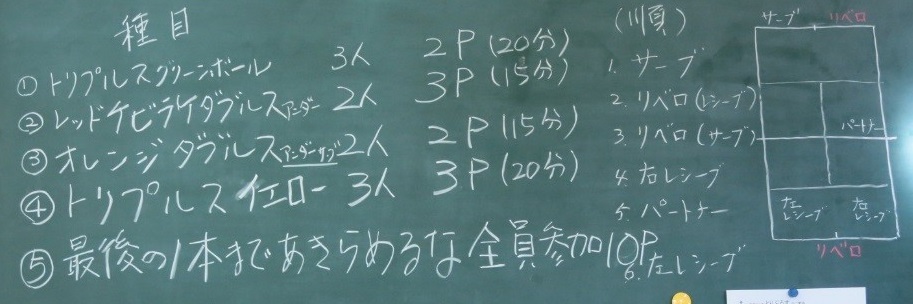 種目
① トリプルスグリーンボール 3人 2P (20分)
② レッドケビライダブルスアンダー 2人 3P (15分)
③ オレンジダブルスアンダーサーブ 2人 2P (15分)
④ トリプルス イエロー 3人 3P (20分)
⑤ 最後の1本まであきらめるな 全員参加 10P
(順)
1. サーブ
2. リベロ (レシーブ)
3. リベロ (サーブ)
4. 右レシーブ
5. パートナー
6. 左レシーブ
サーブ リベロ
パートナー
左レシーブ 右レシーブ
リベロ